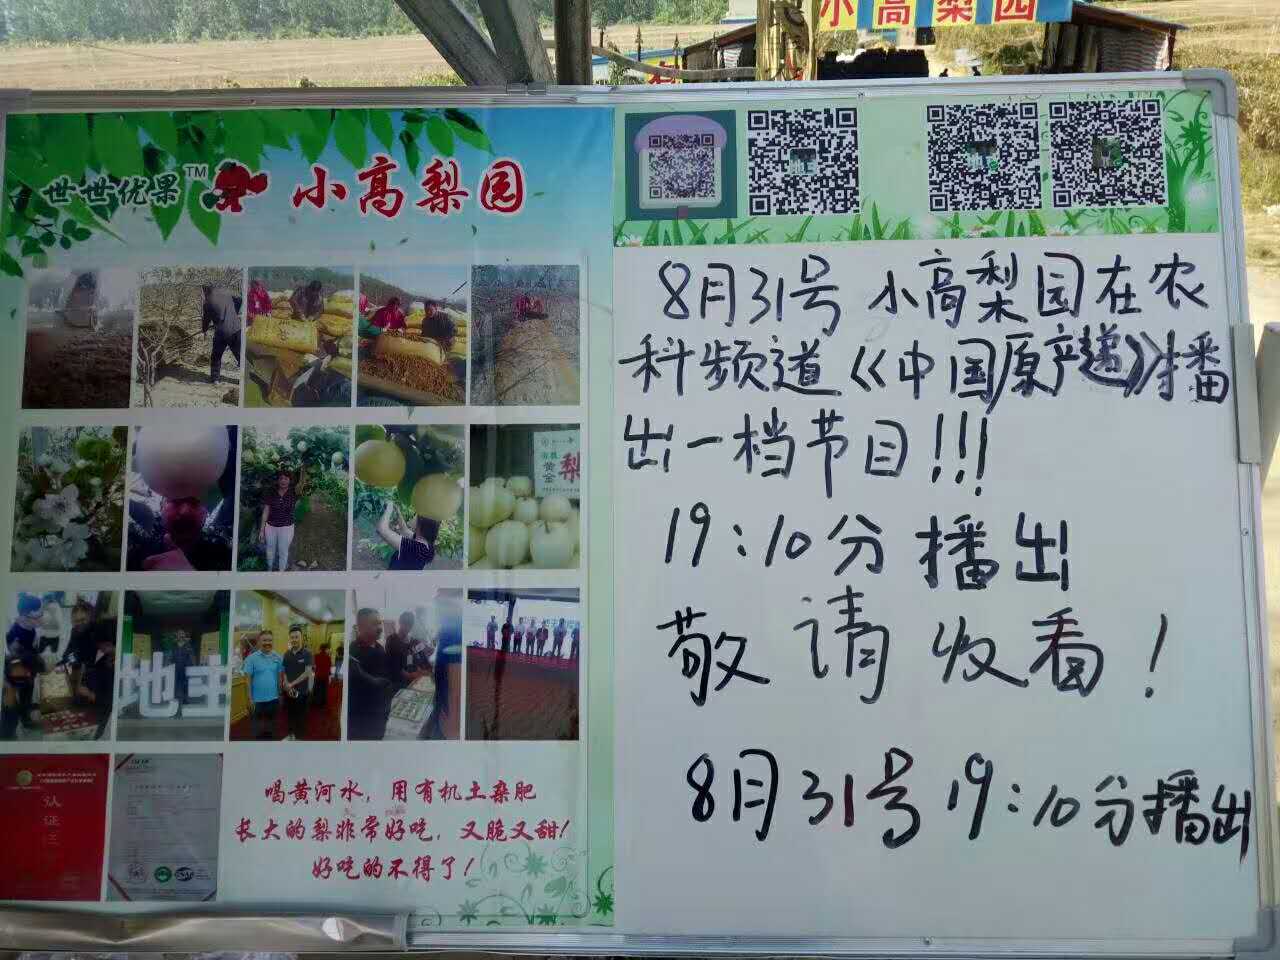 小高梨园
世世优果™ 小高梨园
8月31号 小高梨园在农
科频道《中国原产递》播
出一档节目!!!
19:10分播出
敬请收看!
8月31号19:10分播出
黄金
梨
地主
认证
喝黄河水，用有机土杂肥
长大的梨非常好吃，又脆又甜!
好吃的不得了!